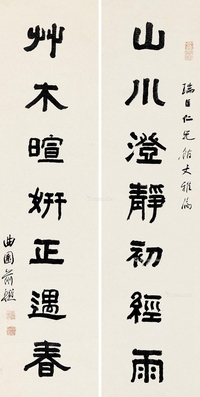 山川澄靜初經雨
艸木暄妍正遇春
瑞臣仁兄館丈雅屬
曲園俞樾